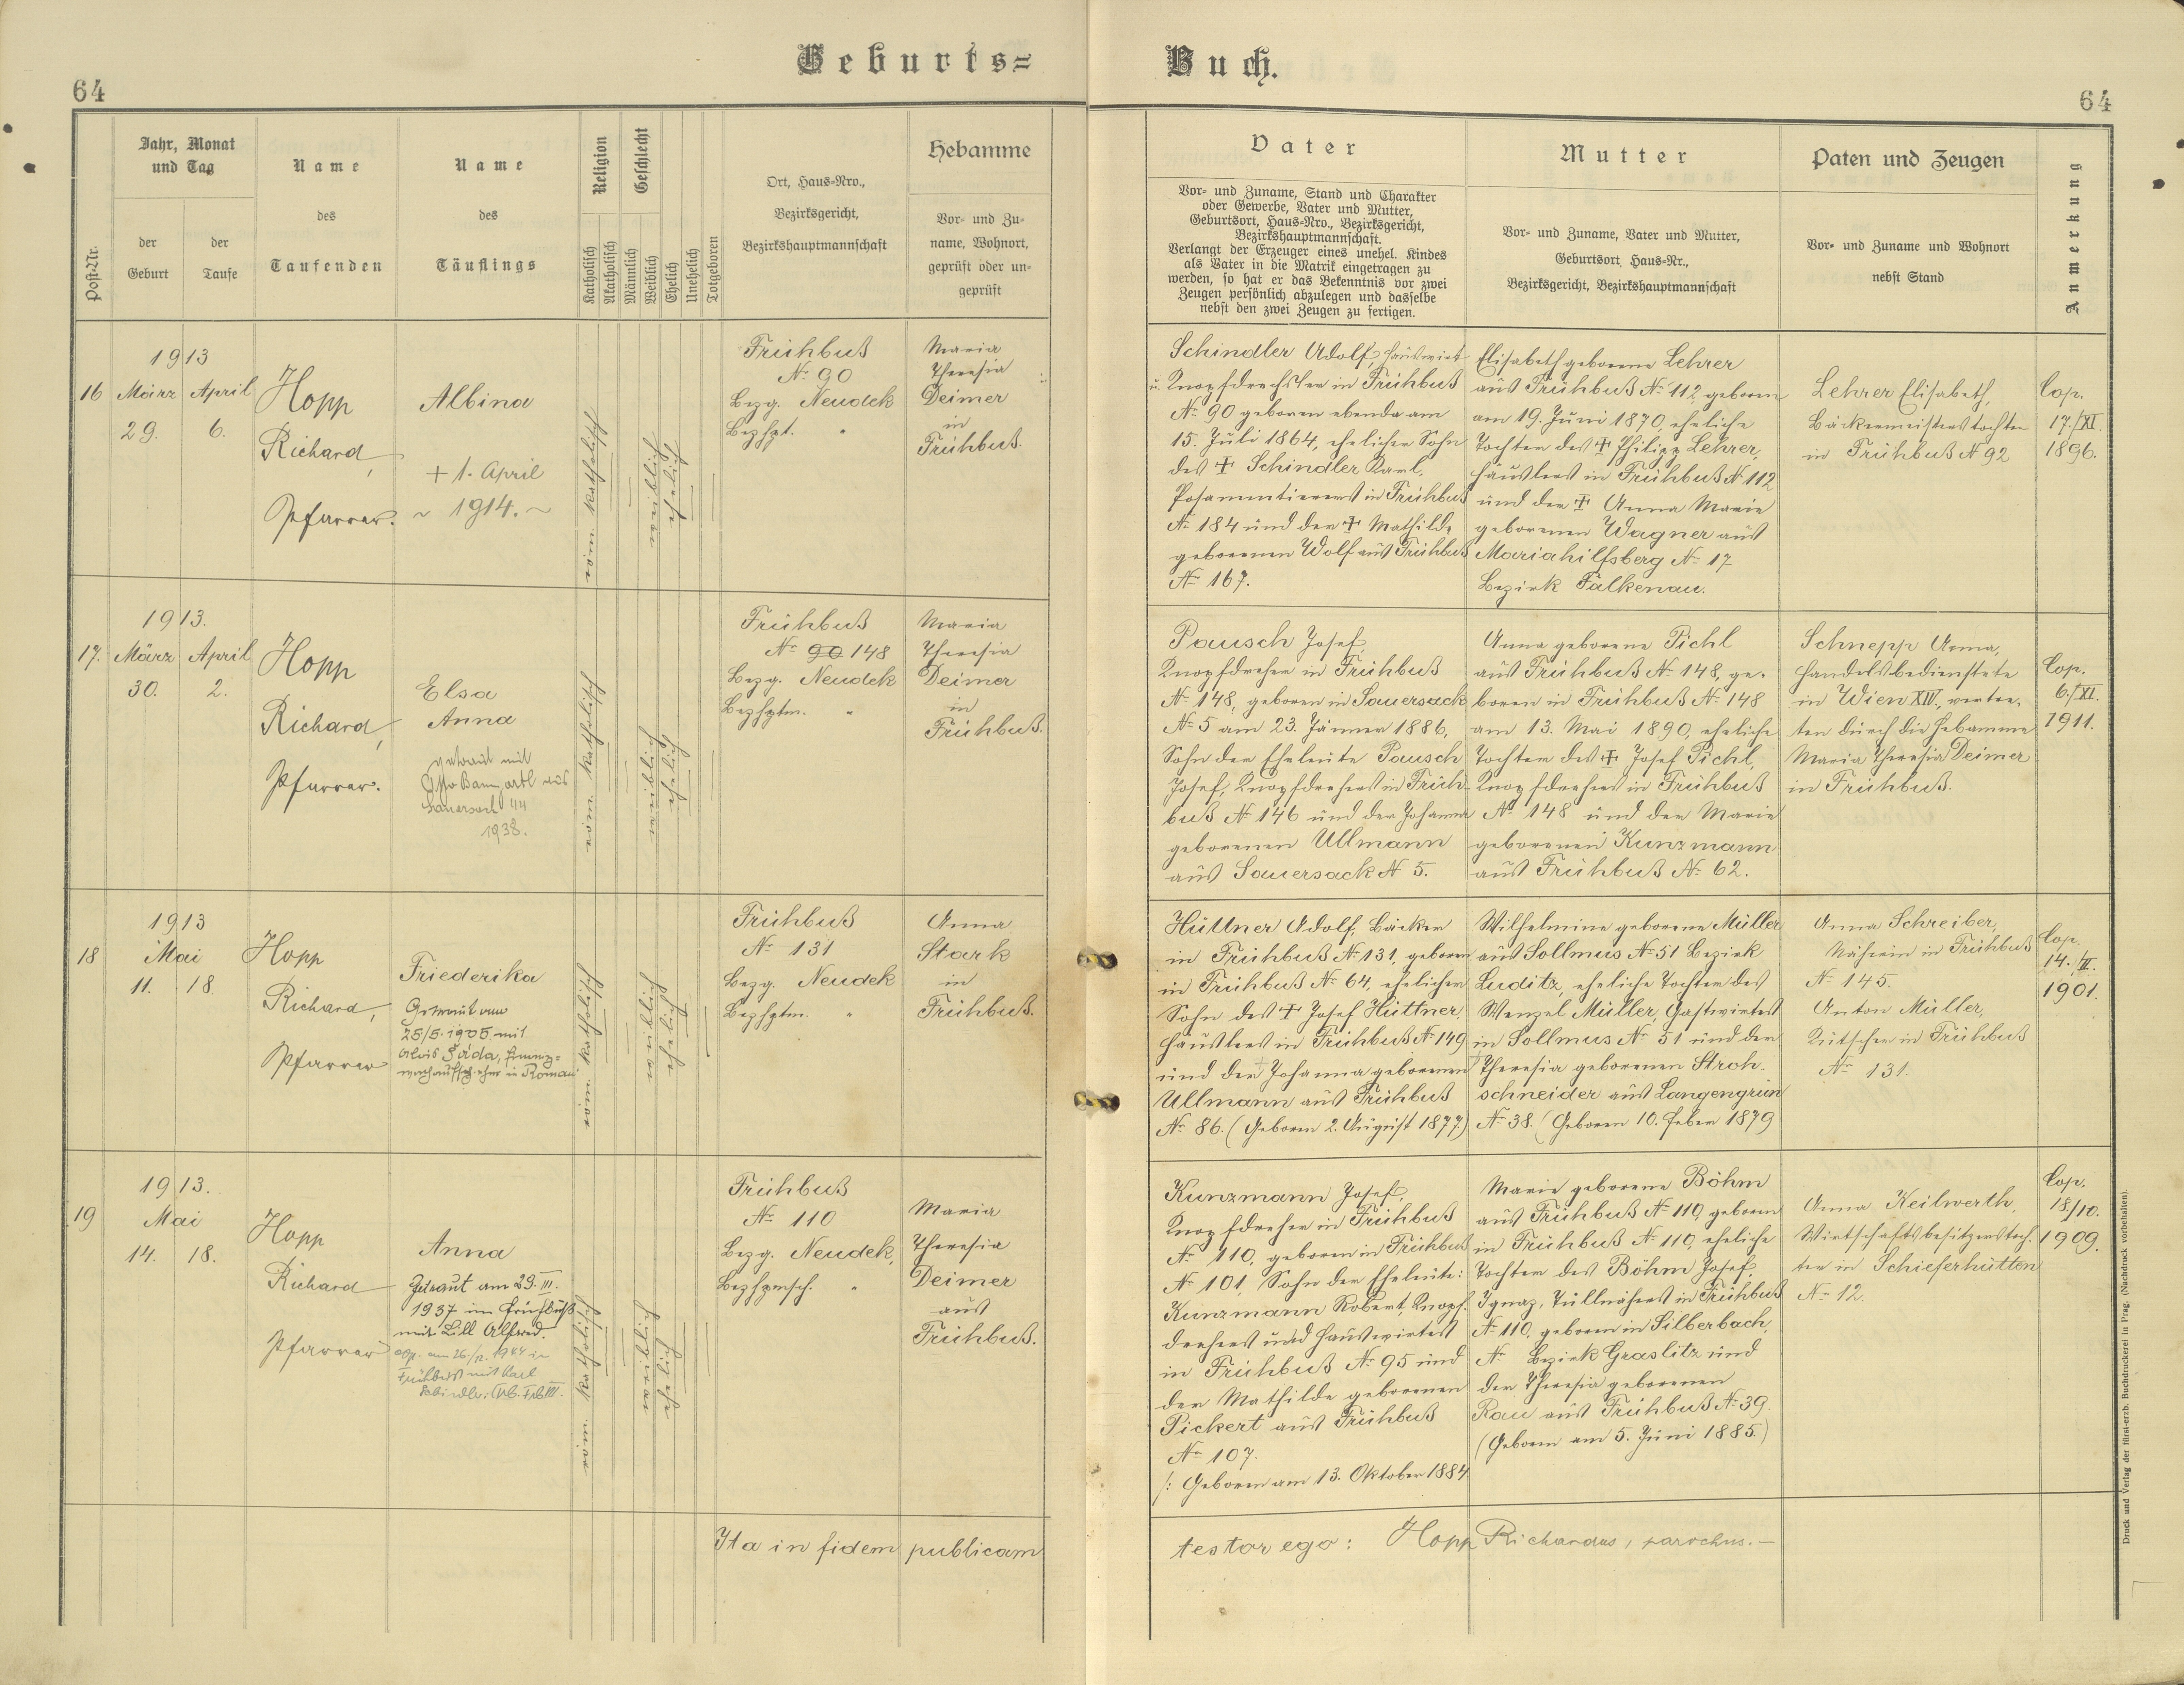 Geburts=
Buch.
64
64
Post-Nr.
Jahr, Monat
und Tag
der
Geburt
der
Taufe
Name
des
Taufenden
Name
des
Täuflings
Religion
Katholisch
Akatholisch
Geschlecht
Männlich
Weiblich
Ehelich
Unehelich
Totgeboren
Ort, Haus=Nro.,
Bezirksgericht,
Bezirkshauptmannschaft
Hebamme
Vor= und Zu=
name, Wohnort,
geprüft oder un=
geprüft
Vater
Vor= und Zuname, Stand und Charakter
oder Gewerbe, Vater und Mutter,
Geburtsort, Haus=Nro., Bezirksgericht,
Bezirkshauptmannschaft.
Verlangt der Erzeuger eines unehel. Kindes
als Vater in die Matrik eingetragen zu
werden, so hat er das Bekenntnis vor zwei
Zeugen persönlich abzulegen und dasselbe
nebst den zwei Zeugen zu fertigen.
Mutter
Vor= und Zuname, Vater und Mutter,
Geburtsort, Haus=Nr.,
Bezirksgericht, Bezirkshauptmannschaft
Paten und Zeugen
Vor= und Zuname und Wohnort
nebst Stand
Anmerkung
1913
16 März April
29. 6.
Hopp
Richard,
Pfarrer.
Albina
+ 1. April
~ 1914. ~
röm. katholisch
weiblich
ehelich
Frühbuß
No 90
Bezg. Neudek
Bezhpt. "
Maria
Theresia
Deimer
in
Frühbuß.
Schindler Adolf, Hauswirt
u. Knopfdrechsler in Frühbuß
No 90 geboren ebenda am
15. Juli 1864, ehelicher Sohn
des + Schindler Karl,
Posamentierers in Frühbuß
No 184 und der + Mathilde
geborenen Wolf aus Frühbuß
No 167.
Elisabeth geborene Lehrer
aus Frühbuß No 112, geboren
am 19. Juni 1870, eheliche
Tochter des + Philipp Lehrer,
Häuslers in Frühbuß No 112
und der + Anna Marie
geborenen Wagner aus
Mariahilfsberg No 17
Bezirk Falkenau.
Lehrer Elisabeth,
Bäckermeisterstochter
in Frühbuß No 92
Cop.
17./XI.
1896.
1913.
17. März April
30. 2.
Hopp
Richard,
Pfarrer.
Elsa
Anna
getraut mit
Otto Baumgartl aus
Sauersack 44
1938.
röm. katholisch
weiblich
ehelich
Frühbuß
No 90 148
Bezg. Neudek
Bezhptm. "
Maria
Theresia
Deimer
in
Frühbuß.
Pausch Josef,
Knopfdreher in Frühbuß
No 148, geboren in Sauersack
No 5 am 23. Jänner 1886,
Sohn der Eheleute Pausch
Josef, Knopfdrehers in Früh-
buß No 146 und der Johanna
geborenen Ullmann
aus Sauersack No 5.
Anna geborene Pichl
aus Frühbuß No 148, ge-
boren in Frühbuß No 148
am 13. Mai 1890, eheliche
Tochter des + Josef Pichl,
Knopfdrehers in Frühbuß
No 148 und der Marie
geborenen Kunzmann
aus Frühbuß No 62.
Schnepp Anna,
Handelsbedienstete
in Wien XIV., vertre-
ten durch die Hebamme
Maria Theresia Deimer
in Frühbuß.
Cop.
6./XI.
1911.
1913
18 Mai
11. 18.
Hopp
Richard,
Pfarrer
Friederika
Getraut am
mit
Alois Šáda, Finanz=
in
röm. katholisch
weiblich
ehelich
Frühbuß
No 131
Bezg. Neudek
Bezhptm. "
Anna
Stark
in
Frühbuß.
Hüttner Adolf, Bäcker
in Frühbuß No 131, geboren
in Frühbuß No 64, ehelicher
Sohn des + Josef Hüttner,
Häuslers in Frühbuß No 149
und der Johanna geborenen
Ullmann aus Frühbuß
No 86. (Geboren 2. August 1877.)
Wilhelmine geborene Müller
aus Sollmus No 51 Bezirk
Luditz, eheliche Tochter des
Wenzel Müller, Gastwirtes
in Sollmus No 51 und der
+ Theresia geborenen Stroh-
schneider aus Langengrün
No 38. (Geboren 10. Feber 1879
Anna Schreiber,
Näherin in Frühbuß
No 145.
Anton Müller,
Kutscher in Frühbuß
No 131.
Cop.
14./II.
1901.
1913.
19 Mai
14. 18.
Hopp
Richard
Pfarrer
Anna
Getraut am 29. III.
1937 in Frühbuß
mit Lill Alfred.
Cop. am 26./ 1944 in
Frühbuß mit Karl
Schindler.
röm. katholisch
weiblich
ehelich
Frühbuß
No 110
Bezg. Neudek,
Bezhpmsch. "
Maria
Theresia
Deimer
aus
Frühbuß.
Kunzmann Josef,
Knopfdreher in Frühbuß
No 110, geboren in Frühbuß
No 101, Sohn der Eheleute:
Kunzmann Robert, Knopf-
drehers und Hauswirtes
in Frühbuß No 95 und
der Mathilde geborenen
Pickert aus Frühbuß
No 107.
/: Geboren am 13. Oktober 1884
Marie geborene Böhm
aus Frühbuß No 110, geboren
in Frühbuß No 110, eheliche
Tochter des Böhm Josef
Ignaz, Tüllnähers in Frühbuß
No 110, geboren in Silberbach,
No Bezirk Graslitz und
der Theresia geborenen
Rau aus Frühbuß No 39.
(Geboren am 5. Juni 1885.)
Anna Keilwerth,
Wirtschaftsbesitzerstoch-
ter in Schieferhütten
No 12.
Cop.
18/10.
1909.
Ita in fidem publicam
testor ego: Hopp Richardus, parochus.—
Druck und Verlag der fürst-erzb. Buchdruckerei in Prag. (Nachdruck vorbehalten).